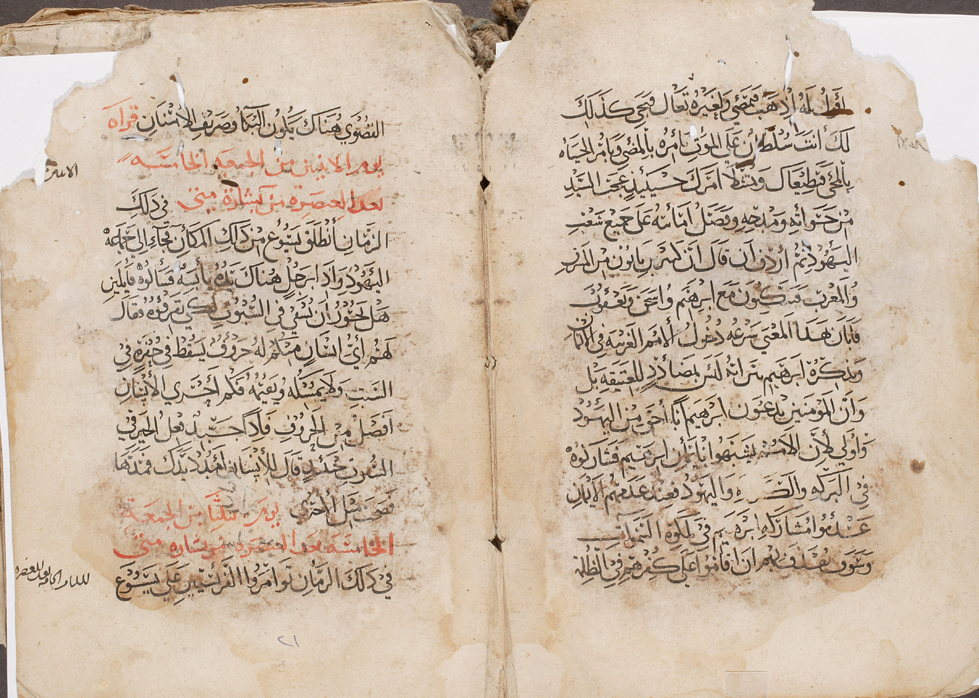 اقول له اذهب فيمضي ولغيره تعال فيجي كذلك
لك انت سلطان على الموت تأمره بالمضي وتأمر الحياه
بالمجي فيطيعاك ويمتثلا امرك حينيذ عجب السيد
من جوابه ومدحه وفضل امانته على جميع شعب
اليهود ثم اردف ان قال ان كثيرين ياتون من المشرق
والمغرب فيتكون مع ابرهيم واسحق ويعقوب
هذا المعنى سرعه دخول الامم الغريبه في الامانه
ابرهيم ليس بمضادد للعتيقه بل
وان المومنين يدعون ابرهيم ابًا احق من اليهود
واولى لأن الامم تشبهوا بايمان ابرهيم فشاركوه
في البركه واليهود فعند عدمهم الايمان
عدموا مشاركه ابرهيم في ملكوة السموات
وسوف يقذف بهم ان اقاموا على كفرهم في الظلمه
القصوى هناك يكون البكا وصريف الاسنان قراه
يوم الاثنين من الجمعه الخامسه
بعد العنصره من بشارة متى في ذلك
الزمان أنطلق يسوع من ذلك المكان فجاء الى مجمعه
اليهود واذا برجل هناك يده يابسه فسالوه قايلين
هل يجوز ان يشفي في السبوت لكي يقرفوه فقال
لهم اي انسان منكم له خروف يسقط في حفره في
السبت ولا يمسكه ويقيمه فكم احرى الانسان
افضل من الخروف فاذًا جيد فعل الخير في
السبوت حينيذ قال للأنسان امدد يدك فمدها
فصحت مثل الاخرى يوم الثلثا من الجمعة
الخامسه بعد العنصره من بشاره متى
في ذلك الزمان توامروا الفريسيين على يسوع
٢١